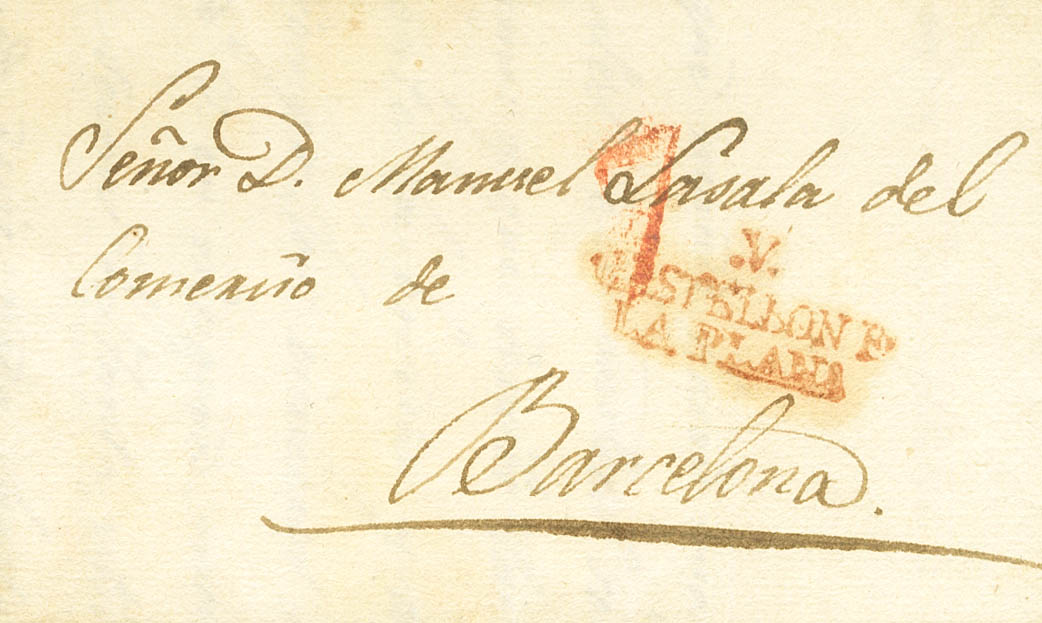 Señor D. Manuel Lasala del
Comercio de
Barcelona.
7
.V.
CASTELLON F
LA PLANA